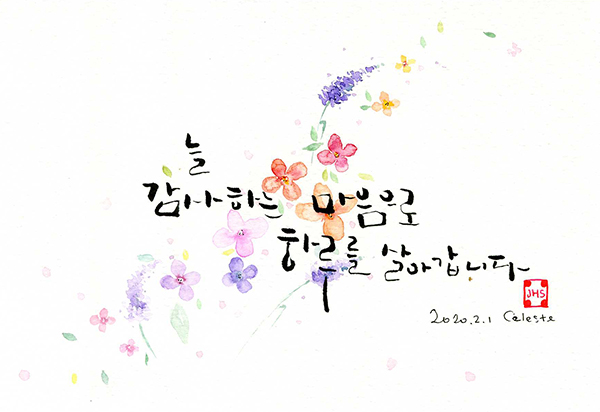 늘
감사하는 마음으로
하루를 살아갑니다
JHS
2020.2.1 Celeste